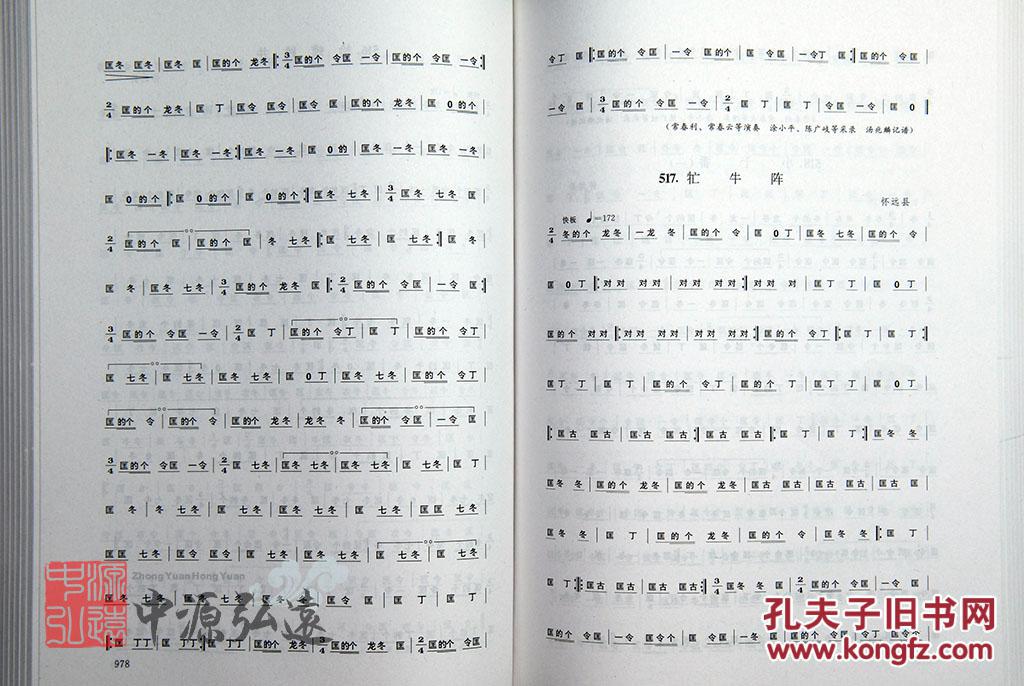 匡冬 匡冬 | 匡冬 匡 | 匡的个 龙冬 |: 3/4 匡的个 令匡 一令 | 匡的个 令匡 一令 :|
2/4 匡的个 龙冬 | 匡 丁 | 匡令 匡令 | 匡令 匡 | 匡的个 龙冬 | 匡 0的个 |
|: 匡冬 一冬 | 匡冬 一冬 :| 匡冬 一冬 | 匡 0的 | 匡冬 一冬 | 匡冬 一冬 |
匡 0的个 |: 匡 0的个 | 匡 0的个 :| 匡冬 七冬 | 3/4 匡冬 七冬 匡 |
2/4 匡的个 匡 | 匡的个 匡 | 冬 七冬 |: 匡 七冬 | 匡 七冬 :| 匡 冬 |
匡 冬 | 匡冬 七冬 | 3/4 匡的个 龙冬 匡 |: 2/4 匡的个 令匡 | 一令 匡 :|
3/4 匡的个 令匡 一令 | 2/4 匡 丁 | 匡的个 令丁 | 匡 丁 | 匡的个 令丁 |
匡 七冬 | 匡 七冬 | 匡冬 七冬 | 匡 0丁 | 匡冬 七冬 | 匡的个 令冬 |
匡的个 令 | 匡的个 令 | 匡的个 龙冬 | 龙冬 冬 | 匡的个 令匡 | 一令 匡 |
3/4 匡的个 令匡 一令 | 2/4 匡 七冬 | 匡冬 七冬 | 匡冬 七冬 | 匡 七冬 | 匡 丁 |
匡 冬 | 冬 七冬 | 匡冬 七冬 | 匡 七冬 | 匡 七冬 | 匡匡 七冬 |
匡匡 七冬 | 匡令 匡令 | 匡 七冬 | 匡冬 七冬 | 匡 七冬 | 匡 七冬 |
匡冬 七冬 | 匡冬 七冬 | 匡冬 冬 | 匡令 匡 | 匡 丁 | 匡 丁 |
|: 匡 丁丁 | 匡 丁丁 :| 匡冬 龙冬 | 匡冬 龙冬 | 3/4 匡冬 龙冬 匡 | 2/4 匡的个 令匡 |
978
令丁 匡 |: 匡的个 令匡 | 一令 匡的个 | 匡 一令丁 | 匡 匡的个 | 令匡 一令 :|
一令 匡 | 3/4 匡的个 令匡 一令 | 2/4 匡 丁 | 匡 丁 | 令匡 一令 | 匡 0 ‖
(常春利、常春云等演奏 涂小平、陈广岐等采录 汤兆麟记谱)
517. 牤 牛 阵
怀远县
快板 ♩=172
2/4 冬的个 龙冬 | 一龙 冬 | 匡的个 令 | 匡 0丁 | 匡冬 七冬 | 匡的个 令 |
匡 0丁 |: 对对 对对 | 对对 对对 :| 对对 对 | 匡的个 令丁 | 匡 0丁 |
匡的个 对对 |: 对对 对对 | 对对 对对 :| 匡的个 令丁 |: 匡 丁 | 匡 丁 :|
匡丁 丁 | 匡 丁 | 匡的个 令丁 | 匡的个 丁 | 匡丁 丁 | 匡 0丁 |
|: 匡古 匡古 | 匡古 匡古 :| 匡古 匡古 |: 匡 丁 | 匡 丁 :| 匡冬 冬 |
匡冬 冬 | 匡的个 龙冬 | 匡的个 龙冬 | 匡古 匡古 | 匡古 匡古 | 匡古 匡 |
匡冬 冬 | 匡 丁 | 匡的个 龙冬 | 匡的个 令冬 | 匡冬 七冬 |: 匡 丁 |
匡 丁 :| 匡古 匡古 | 匡古 匡古 :| 3/4 匡冬 冬 匡 | 2/4 匡的个 令 | 匡的个 令 |
匡的个 令匡 | 一令 匡令个 | 匡 令匡 | 一冬 匡 | 匡的个 令匡 | 令丁 匡令个 |
中源弘遠
Zhong Yuan Hong Yuan
中源弘遠
孔夫子旧书网
www.kongfz.com